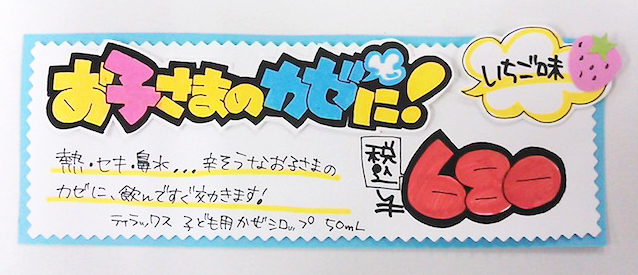 お子さまのかぜに!
いちご味
熱・セキ・鼻水...辛そうなお子さまの
カゼに、飲んですぐ効きます!
ティラックス 子ども用かぜシロップ 50mL
税込
¥680